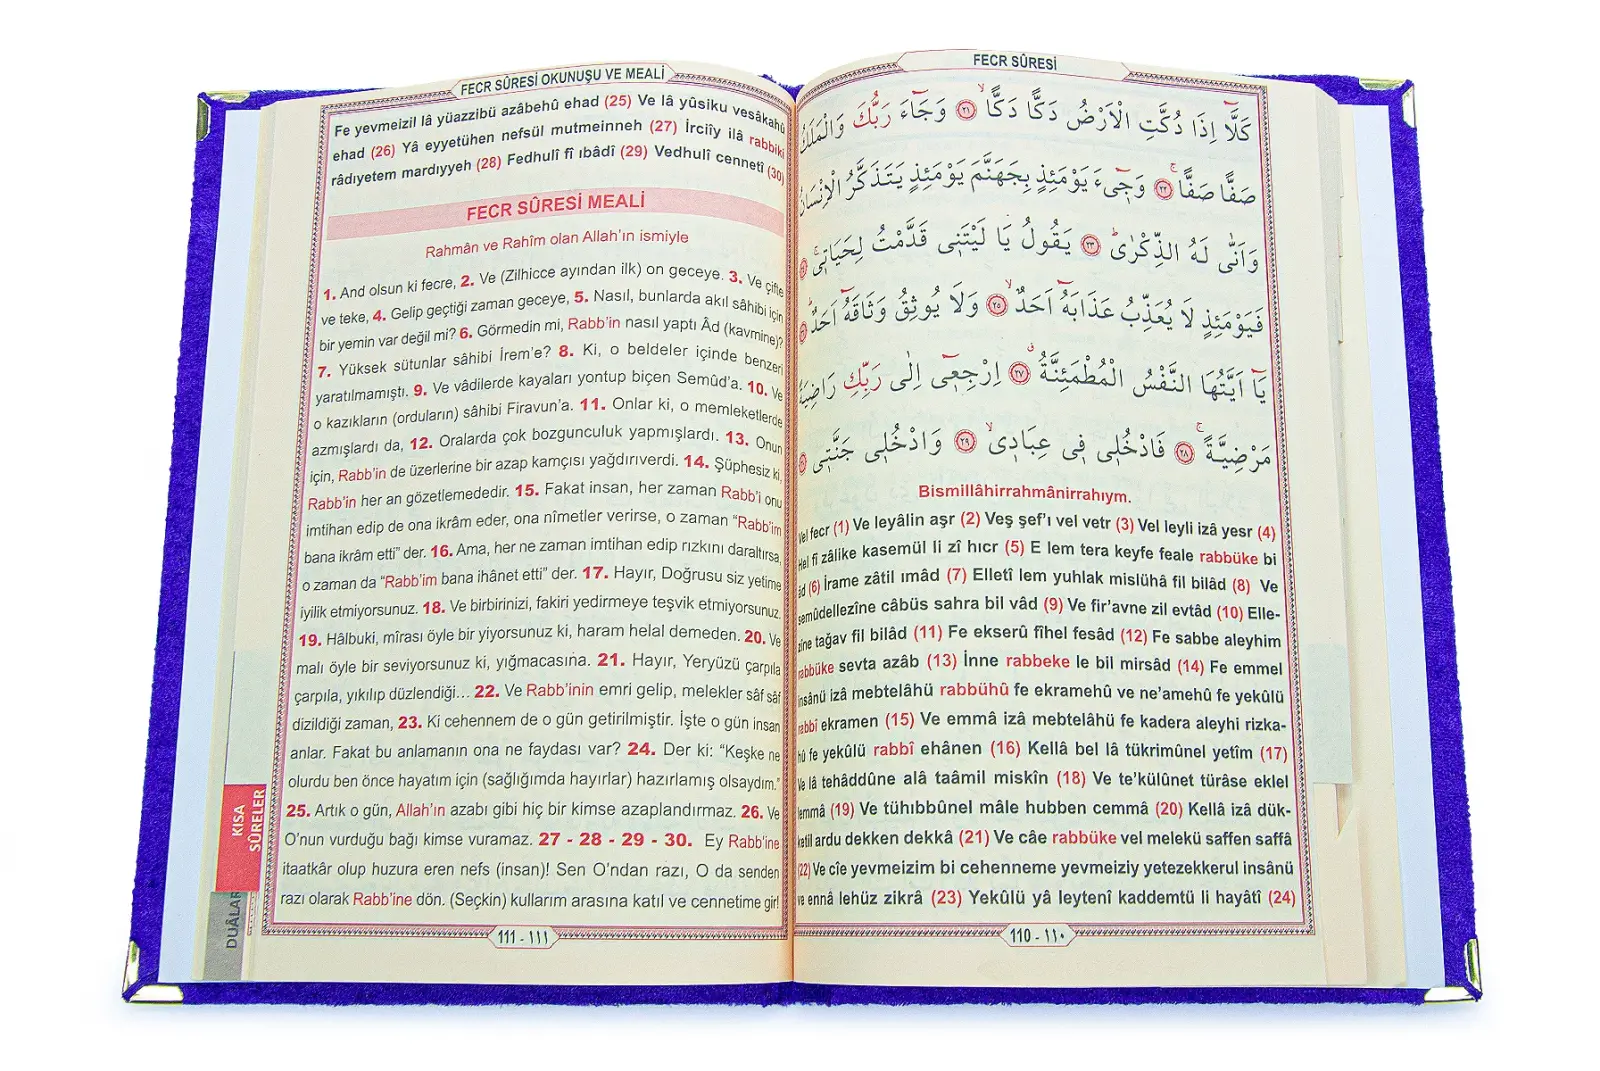 FECR SÛRESİ
كَلَّٓا اِذَا دُكَّتِ الْاَرْضُ دَكًّا دَكًّاۙ ﴿٢١﴾ وَجَٓاءَ رَبُّكَ وَالْمَلَكُ
صَفًّا صَفًّاۚ ﴿٢٢﴾ وَج۪ٓيءَ يَوْمَئِذٍ بِجَهَنَّمَ يَوْمَئِذٍ يَتَذَكَّرُ الْاِنْسَانُ
وَاَنّٰى لَهُ الذِّكْرٰىۜ ﴿٢٣﴾ يَقُولُ يَا لَيْتَن۪ي قَدَّمْتُ لِحَيَات۪يۚ
فَيَوْمَئِذٍ لَا يُعَذِّبُ عَذَابَهُٓ اَحَدٌۙ ﴿٢٥﴾ وَلَا يُوثِقُ وَثَاقَهُٓ اَحَدٌۜ
يَٓا اَيَّتُهَا النَّفْسُ الْمُطْمَئِنَّةُۗ ﴿٢٧﴾ اِرْجِع۪ٓي اِلٰى رَبِّكِ رَاضِيَةً
مَرْضِيَّةًۚ ﴿٢٨﴾ فَادْخُل۪ي ف۪ي عِبَاد۪يۙ ﴿٢٩﴾ وَادْخُل۪ي جَنَّت۪ي
Bismillâhirrahmânirrahıym.
Vel fecr (1) Ve leyâlin aşr (2) Veş şef’ı vel vetr (3) Vel leyli izâ yesr (4)
Hel fî zâlike kasemül li zî hıcr (5) E lem tera keyfe feale rabbüke bi
âd (6) İrame zâtil ımâd (7) Elletî lem yuhlak mislühâ fil bilâd (8) Ve
semûdellezîne câbüs sahra bil vâd (9) Ve fir’avne zil evtâd (10) Elle-
zîne tağav fil bilâd (11) Fe ekserû fîhel fesâd (12) Fe sabbe aleyhim
rabbüke sevta azâb (13) İnne rabbeke le bil mirsâd (14) Fe emmel
insânü izâ mebtelâhü rabbühû fe ekramehû ve ne’amehû fe yekûlü
rabbî ekramen (15) Ve emmâ izâ mebtelâhü fe kadera aleyhi rizka-
hû fe yekûlü rabbî ehânen (16) Kellâ bel lâ tükrimûnel yetîm (17)
Ve lâ tehâddûne alâ taâmil miskîn (18) Ve te’külûnet türâse eklel
lemmâ (19) Ve tühıbbûnel mâle hubben cemmâ (20) Kellâ izâ dük-
ketil ardu dekken dekkâ (21) Ve câe rabbüke vel melekü saffen saffâ
(22) Ve cîe yevmeizim bi cehenneme yevmeiziy yetezekkerul insânü
ve ennâ lehüz zikrâ (23) Yekûlü yâ leytenî kaddemtü li hayâtî (24)
110 - ١١٠
FECR SÛRESİ OKUNUŞU VE MEALİ
Fe yevmeizil lâ yüazzibü azâbehû ehad (25) Ve lâ yûsiku vesâkahû
ehad (26) Yâ eyyetühen nefsül mutmeinneh (27) İrciîy ilâ rabbiki
râdıyetem mardıyyeh (28) Fedhulî fî ıbâdî (29) Vedhulî cennetî (30)
FECR SÛRESİ MEALİ
Rahmân ve Rahîm olan Allah’ın ismiyle
1. And olsun ki fecre, 2. Ve (Zilhicce ayından ilk) on geceye. 3. Ve çifte
ve teke, 4. Gelip geçtiği zaman geceye, 5. Nasıl, bunlarda akıl sâhibi için
bir yemin var değil mi? 6. Görmedin mi, Rabb’in nasıl yaptı Âd (kavmine)?
7. Yüksek sütunlar sâhibi İrem’e? 8. Ki, o beldeler içinde benzeri
yaratılmamıştı. 9. Ve vâdilerde kayaları yontup biçen Semûd’a. 10. Ve
o kazıkların (orduların) sâhibi Firavun’a. 11. Onlar ki, o memleketlerde
azmışlardı da, 12. Oralarda çok bozgunculuk yapmışlardı. 13. Onun
için, Rabb’in de üzerlerine bir azap kamçısı yağdırıverdi. 14. Şüphesiz ki,
Rabb’in her an gözetlemededir. 15. Fakat insan, her zaman Rabb’i onu
imtihan edip de ona ikrâm eder, ona nîmetler verirse, o zaman “Rabb’im
bana ikrâm etti” der. 16. Ama, her ne zaman imtihan edip rızkını daraltırsa,
o zaman da “Rabb’im bana ihânet etti” der. 17. Hayır, Doğrusu siz yetime
iyilik etmiyorsunuz. 18. Ve birbirinizi, fakiri yedirmeye teşvik etmiyorsunuz.
19. Hâlbuki, mîrası öyle bir yiyorsunuz ki, haram helal demeden. 20. Ve
malı öyle bir seviyorsunuz ki, yığmacasına. 21. Hayır, Yeryüzü çarpıla
çarpıla, yıkılıp düzlendiği... 22. Ve Rabb’inin emri gelip, melekler sâf sâf
dizildiği zaman, 23. Ki cehennem de o gün getirilmiştir. İşte o gün insan
anlar. Fakat bu anlamanın ona ne faydası var? 24. Der ki: “Keşke ne
olurdu ben önce hayatım için (sağlığımda hayırlar) hazırlamış olsaydım.”
25. Artık o gün, Allah’ın azabı gibi hiç bir kimse azaplandırmaz. 26. Ve
O’nun vurduğu bağı kimse vuramaz. 27 - 28 - 29 - 30. Ey Rabb’ine
itaatkâr olup huzura eren nefs (insan)! Sen O’ndan razı, O da senden
razı olarak Rabb’ine dön. (Seçkin) kullarım arasına katıl ve cennetime gir!
111 - ١١١
KISA
SÛRELER
DUÂLAR